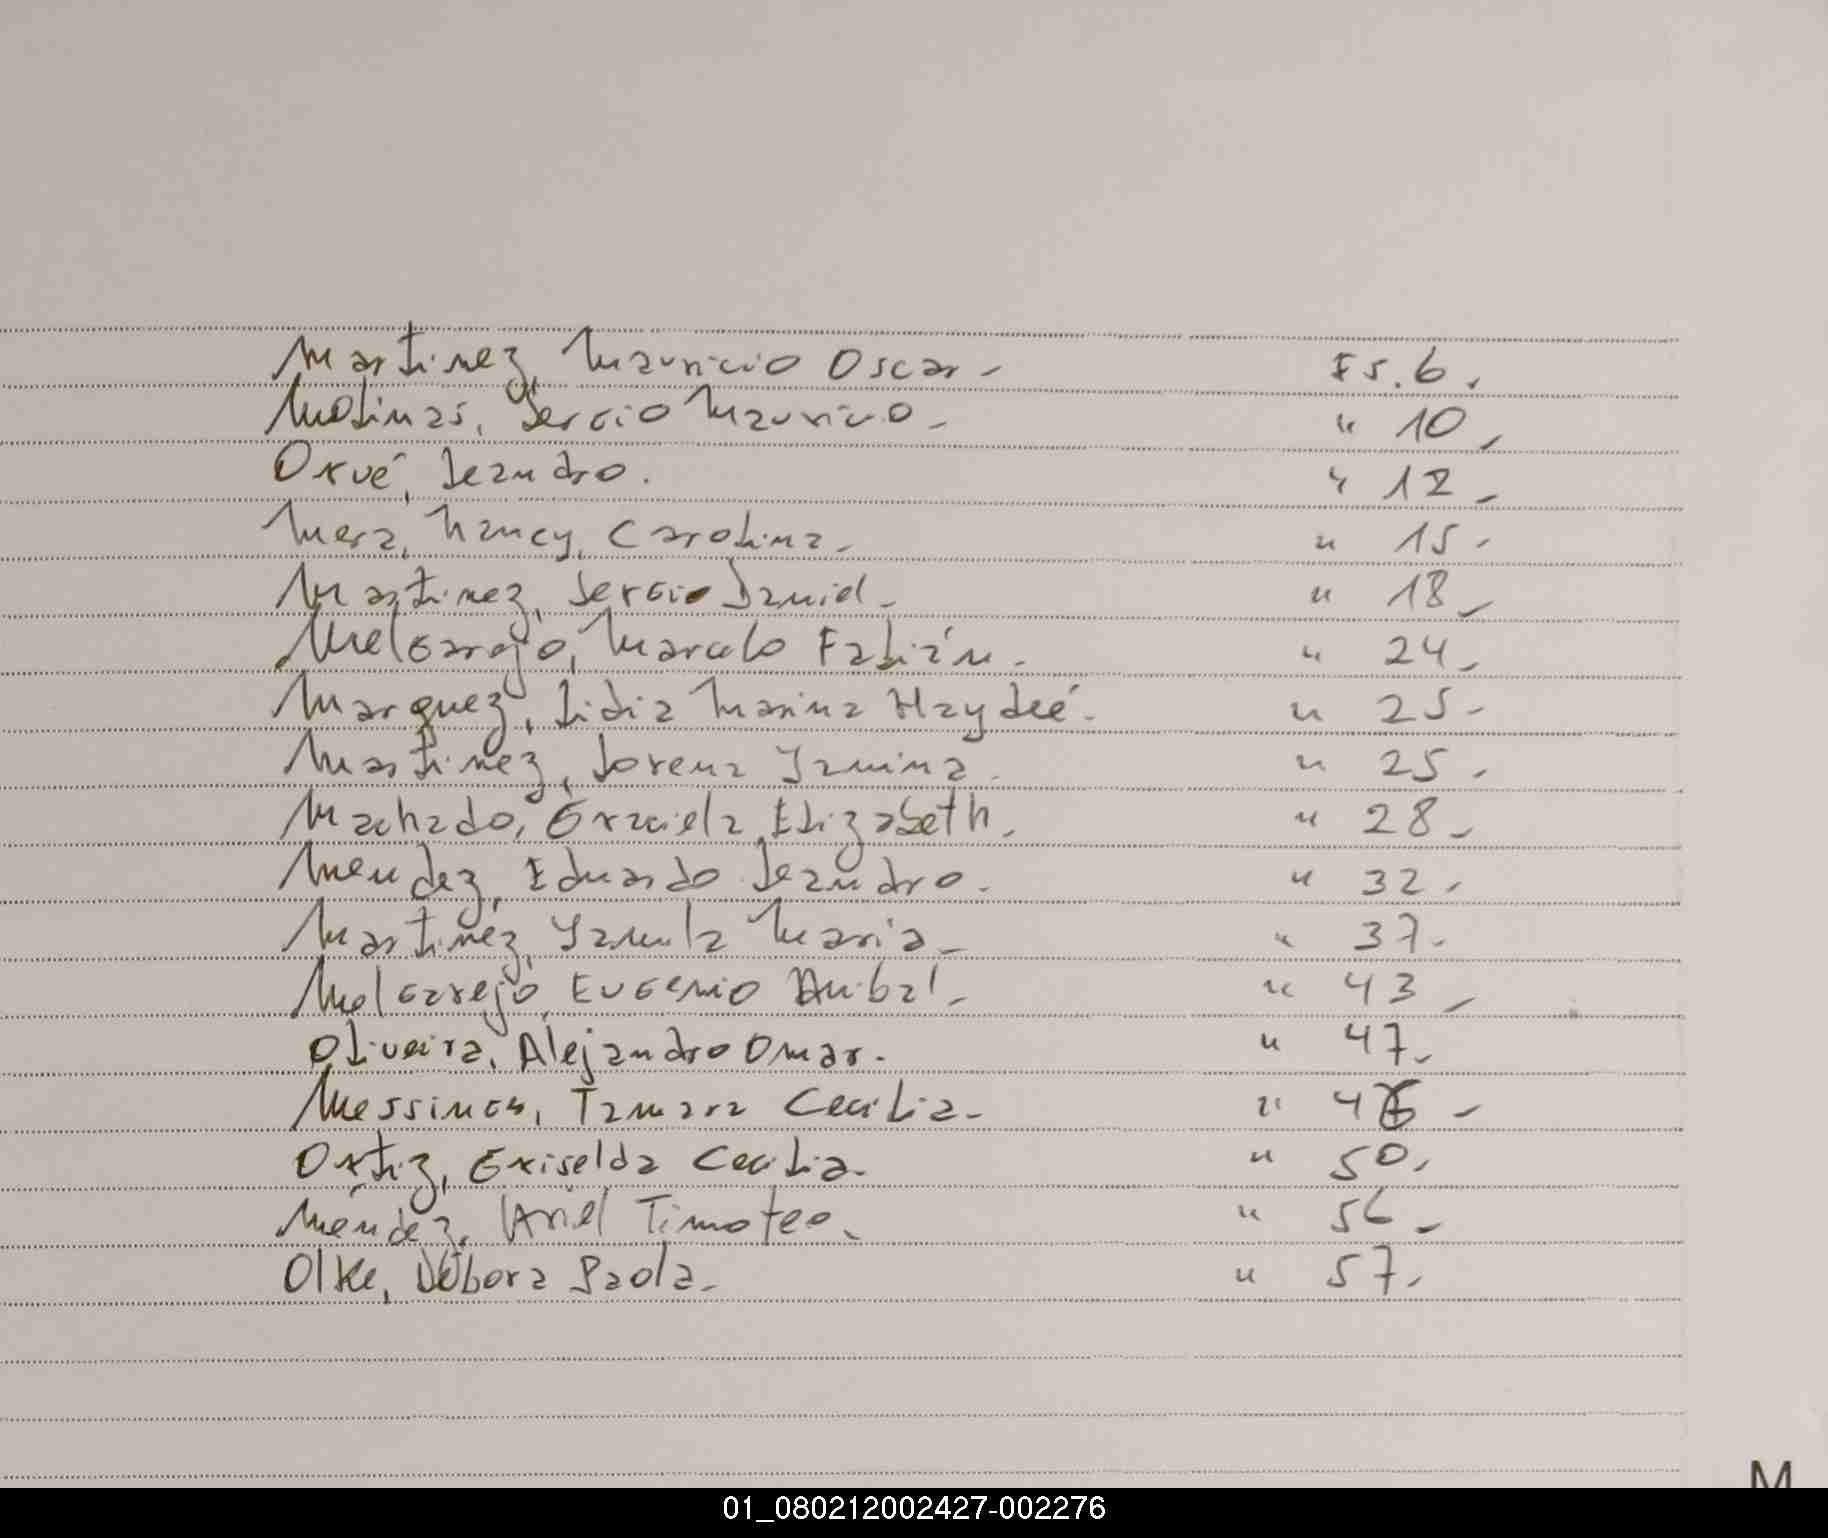 Martinez, Mauricio Oscar - Fs. 6.
Molinas, Sergio Mauricio - " 10 -
Orué, Leandro. " 12 -
Mera, Nancy, Carolina - " 15 -
Martinez, Sergio Daniel - " 18 -
Melgarejo, Marcelo Fabián - " 24 -
Marquez, Lidia Marina Haydeé - " 25 -
Martinez, Lorena Yanina. " 25 -
Machado, Graciela Elizabeth. " 28 -
Mendez, Eduardo Leandro. " 32 -
Martinez, Yamila Maria - " 37 -
Melgarejo, Eugenio Anibal - " 43 -
Oliveira, Alejandro Omar. " 47 -
Tamara Cecilia - " -
Ortiz, Griselda Cecilia. " 50 -
Méndez, Ariel Timoteo. " 56 -
Olke, Débora Paola - " 57 -
M
01_080212002427-002276